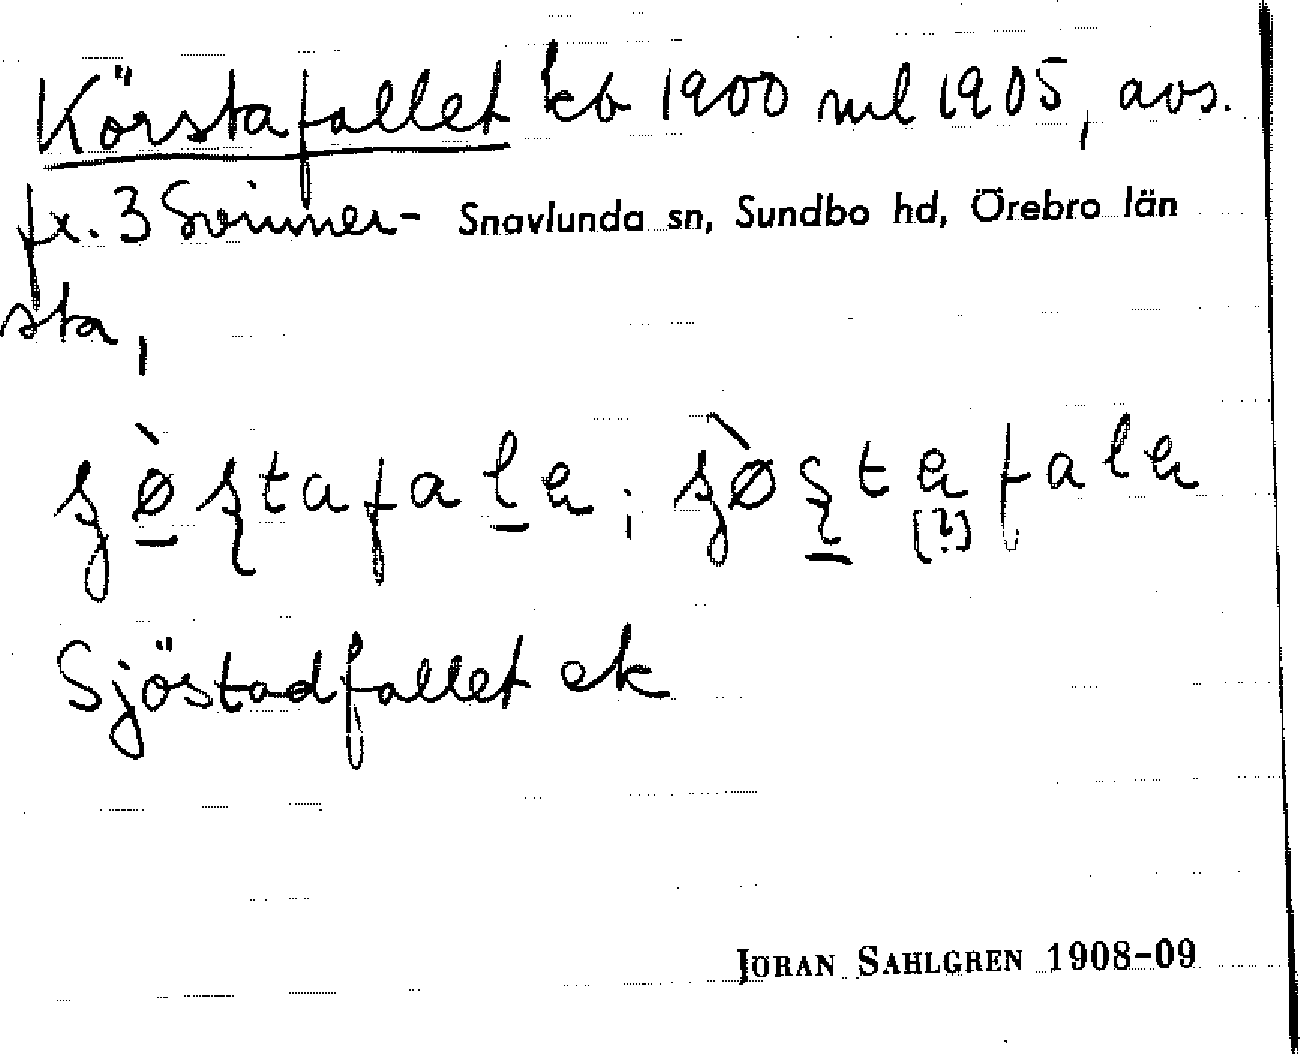 Körstafallet kb 1900 ml 1905, avs.
fr. 3 Svinner- Snavlunda sn, Sundbo hd, Örebro län
sta,
[?]
Sjöstadfallet ek
JORAN SAHLGREN 1908-09